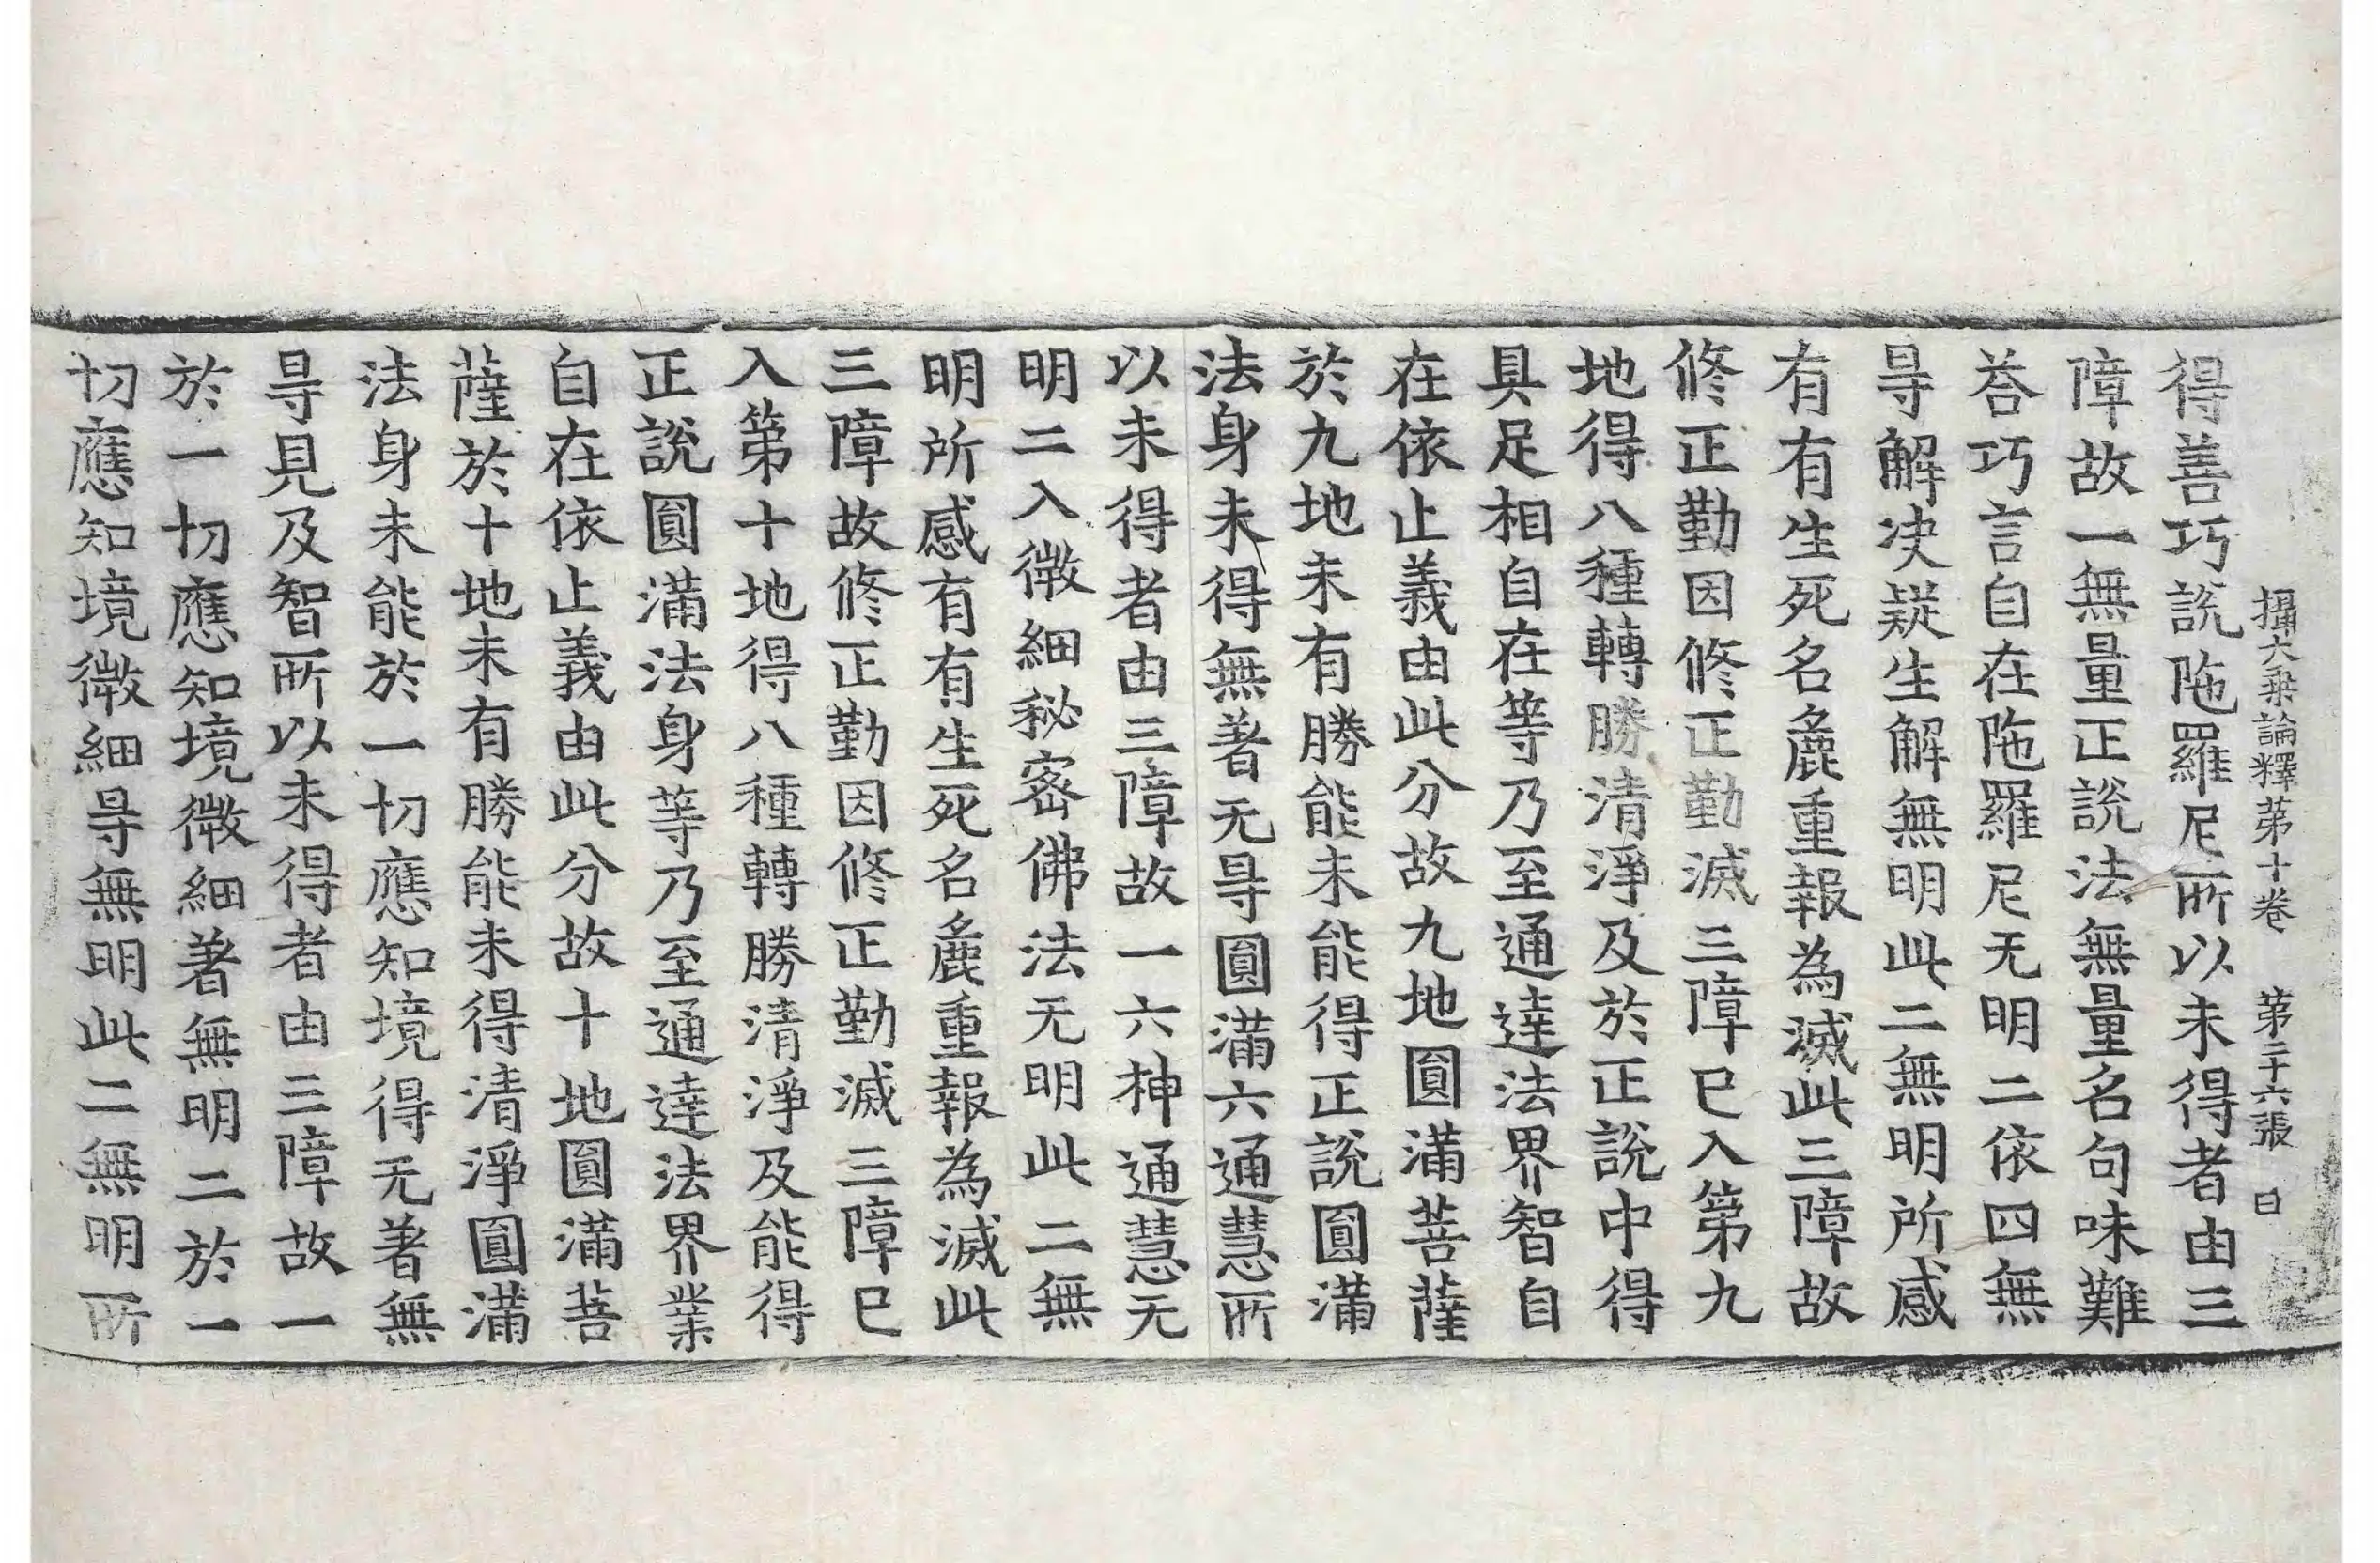 攝大乗論釋苐十卷　苐二十六張　曰
得善巧說陁羅尼所以未得者由三
障故一無量正說法無量名句味難
荅巧言自在陁羅尼无明二依四無
㝵解决疑生解無明此二無明所感
有有生死名麁重報為滅此三障故
修正勤因修正勤滅三障已入第九
地得八種轉勝清淨及於正說中得
具足相自在等乃至通達法界智自
在依止義由此分故九地圓滿菩薩
於九地未有勝能未能得正說圓滿
法身未得無著无㝵圓滿六通慧所
以未得者由三障故一六神通慧无
明二入微細秘密佛法无明此二無
明所感有有生死名麁重報為滅此
三障故修正勤因修正勤滅三障已
入第十地得八種轉勝清淨及能得
正說圓滿法身等乃至通達法界業
自在依止義由此分故十地圓滿菩
薩於十地未有勝能未得清淨圓滿
法身未能於一切應知境得无著無
㝵見及智所以未得者由三障故一
於一切應知境微細著無明二於一
切應知境微細㝵無明此二無明所